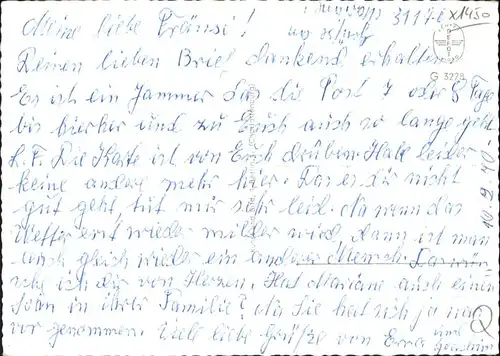 31170 X1450
Meine liebe Fränsi!
G 3228
Deinen lieben Brief dankend erhalten
Es ist ein Jammer das die Post 7 oder 8 Tage
bis hierher und zu Euch auch so lange geht
Die Karte ist von Euch drüben. Habe leider
keine andere mehr hier. Das es dir nicht
gut geht tut mir sehr leid. Na wenn das
Wetter erst wieder milder wird, dann ist man
auch gleich wieder ein anderer Mensch. Das wün-
sche ich dir von Herzen. Hat Mariane auch einen
in ihrer Familie? Na Sie hat sich ja
vor genommen. Viele liebe Grüße von Erna
und Joachim
10.2.70.